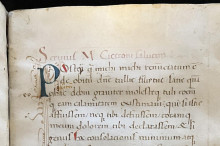 Seruius M Ciceroni salutem
Postq̃ michi renunciatum e
de obitu tullie filie tue sane qua
debui grauiter molesteq; tuli com
eam calamitatem existimaui, qui si istic
affuissem neq; tibi defuissem coramq;
meum dolorem tibi declarassem. Etsi
genus hoc consolationis miserum